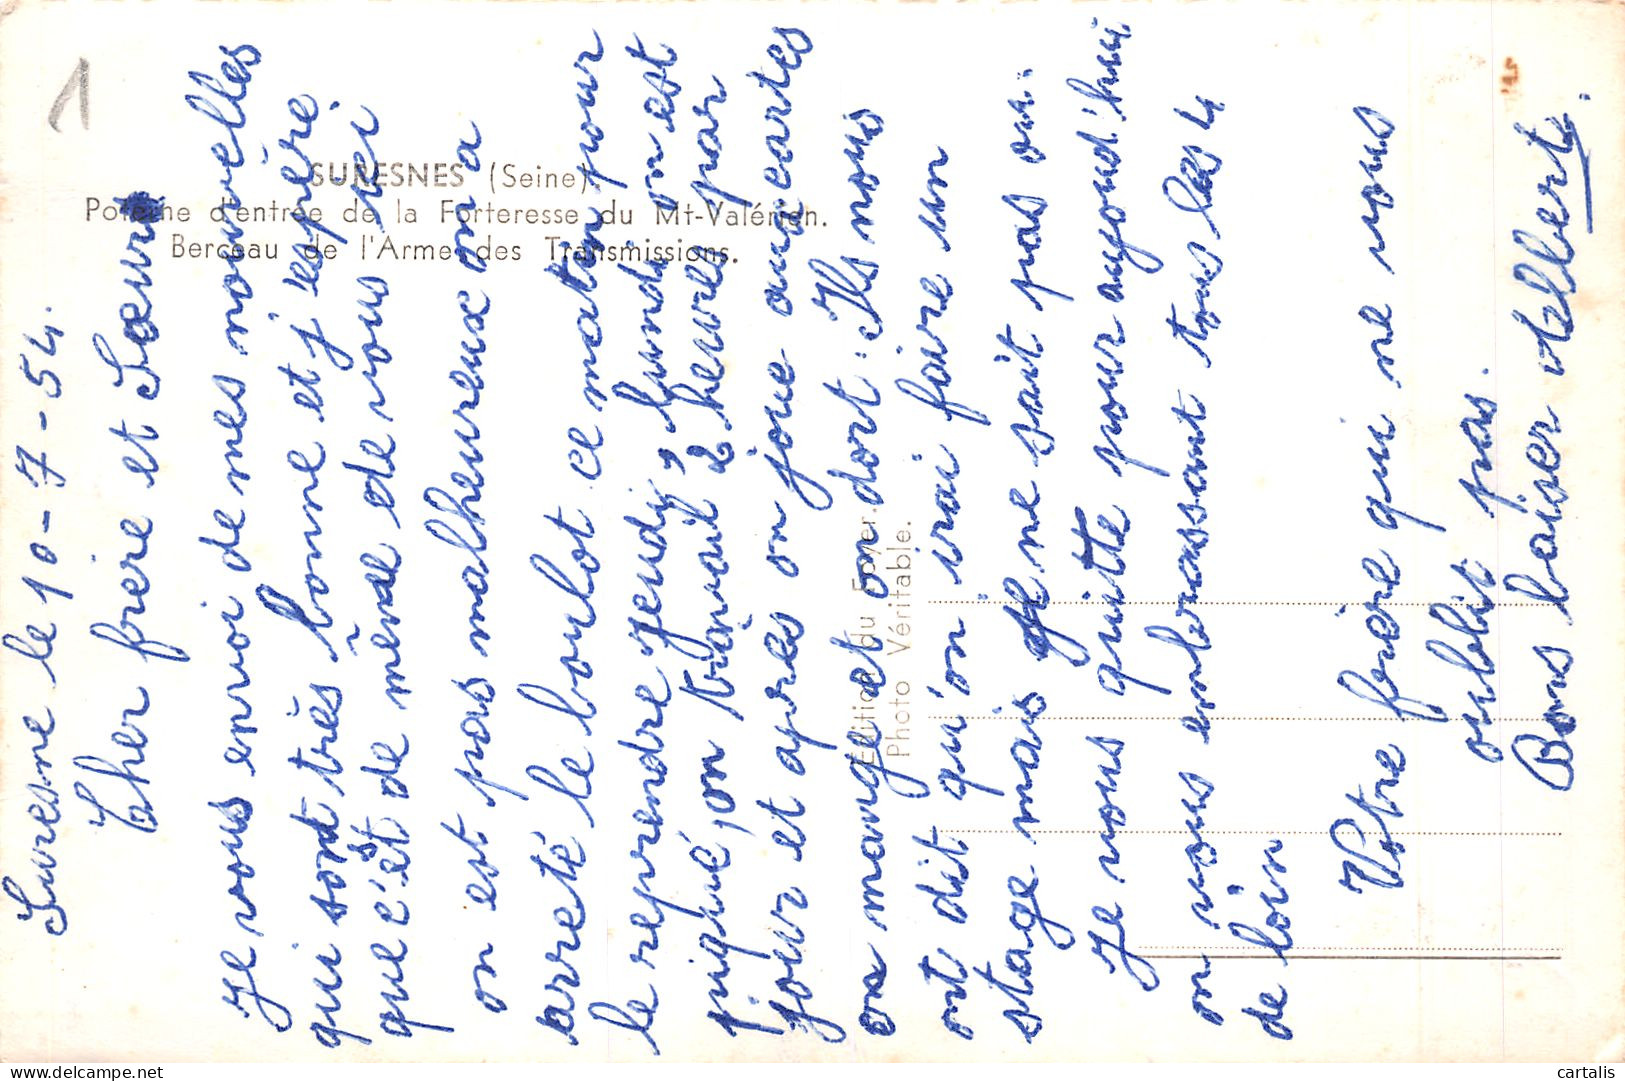 1
SURESNES (Seine).
Poterne d'entrée de la Forteresse du Mt-Valérien.
Berceau de l'Arme des Transmissions.
Edition du Foyer.
Photo Véritable.
Suresne le 10-7-54.
Cher frère et Soeur
Je vous envoi de mes nouvelles
qui sont très bonne et j'espère
que c'est de même de vous ici
on est pas malheureux on a
arreté le boulot ce matin pour
le reprendre jeudi, lundi on est
piqué, on travail 2 heures par
jour et apres on joue aux cartes
on mange et on dort. Ils nous
ont dit qu'on vrai faire un
stage mais je ne sait pas ou.
Je vous quitte pour aujoud'hui
on vous embrassant tous les 4
de loin
Votre frère qui ne vous
oublit pas.
Bons baiser Albert.
cartalis